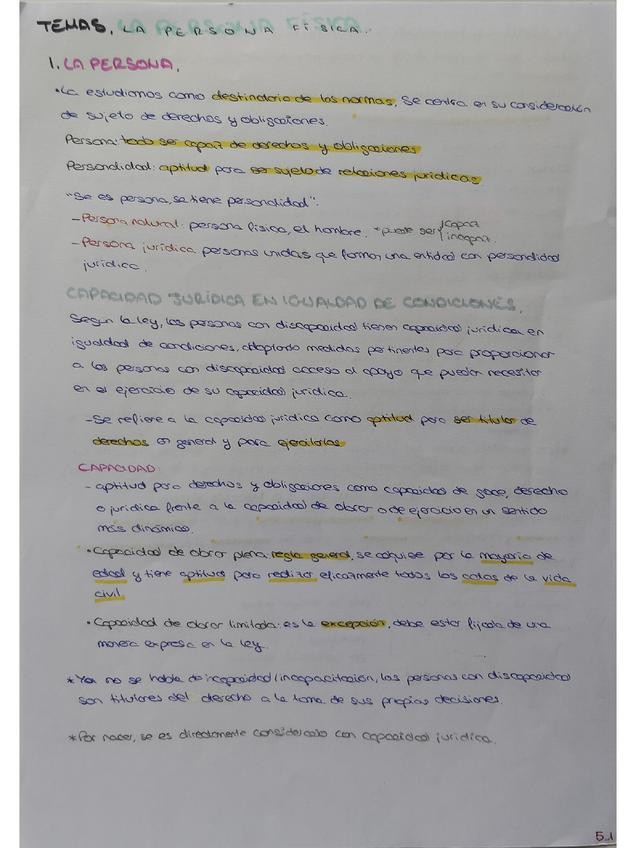 TEMA5. LA PERSONA FÍSICA.
1. LA PERSONA.
•La estudiamos como destinatario de las normas. Se centra en su consideración
de sujeto de derechos y obligaciones.
Persona: todo ser capaz de derechos y obligaciones
Personalidad: aptitud para ser sujeto de relaciones jurídicas.
"Se es persona, se tiene personalidad".
- Persona natural: persona física, el hombre. *puede ser capaz
incapaz.
- Persona jurídica personas unidas que forman una entidad con personalidad
jurídica.
CAPACIDAD JURÍDICA EN IGUALDAD DE CONDICIONES.
Según la ley, las personas con discapacidad tienen capacidad jurídica en
igualdad de condiciones, adoptando medidas pertinentes para proporcionar
a las personas con discapacidad acceso al apoyo que puedan necesitar
en el ejercicio de su capacidad jurídica.
-Se refiere a la capacidad jurídica como aptitud para ser titular de
derechos en general y para ejercitarlos
CAPACIDAD
- aptitud para derechos y obligaciones como capacidad de goce, derecho
o jurídica frente a la capacidad de obrar o de ejercicio en un sentido
más dinámico.
•Capacidad de obrar plena, regla general, se adquiere por la mayoría de
edad y tiene aptitud para realizar eficazmente todos los actos de la vida
civil.
•Capacidad de obrar limitada: es la excepción, debe estar fijada de una
manera expresa en la ley.
*Ya no se habla de incapacidad/incapacitación, las personas con discapacidad
son titulares del derecho a la toma de sus propias decisiones.
*Por nacer, se es directamente considerado con capacidad jurídica.
5.1